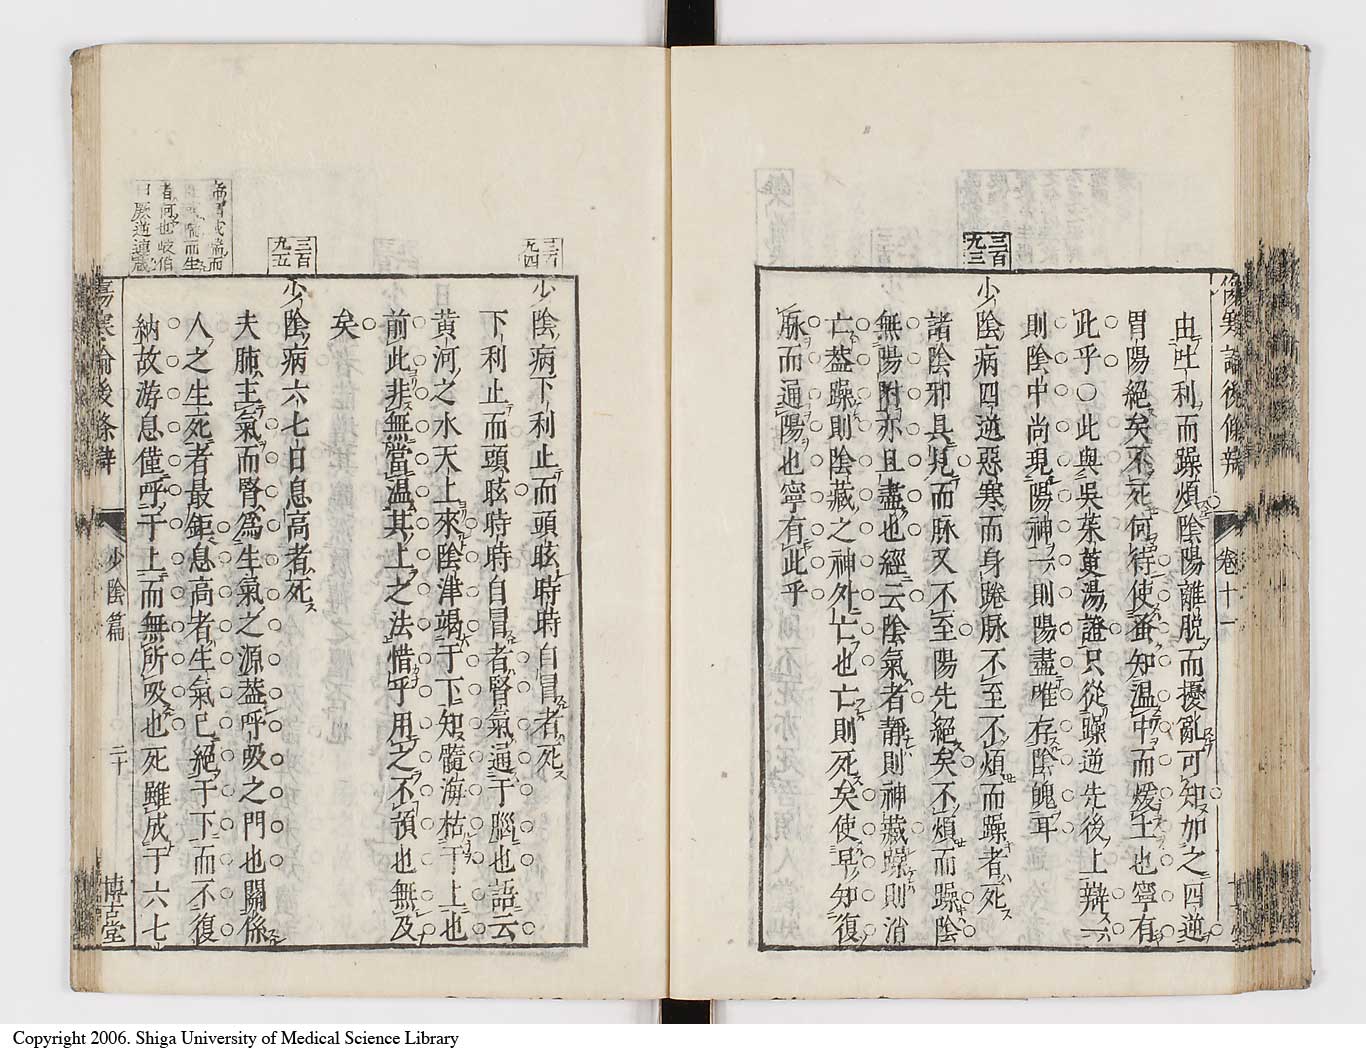 傷寒論後條辨
卷十一
三百九三
由吐利而躁煩陰陽離脱而擾亂可知加之四逆
胃陽絕矣不死何待使蚤知温中而煖土也寧有
此乎○此與吳茱萸湯證只從躁逆先後上辯一
則陰中尚現陽神一則陽盡唯存陰魄耳
少陰病四逆惡寒而身踡脉不至不煩而躁者死
諸陰邪具見而脉又不至陽先絕矣不煩而躁陰
無陽附亦且盡也經云陰氣者靜則神藏躁則消
亡蓋躁則陰藏之神外亡也亡則死矣使早知復
脉而通陽也寧有此乎
三百九四
少陰病下利止而頭眩時時自冒者死
下利止而頭眩時時自冒者腎氣通于腦也語云
黃河之水天上來陰津竭于下知髓海枯于上也
前此非無當温其上之法惜乎用之不預也無及
矣
三百九五
少陰病六七日息高者死
夫肺主氣而腎爲生氣之源蓋呼吸之門也關係
人之生死者最鉅息高者生氣已絕于下而不復
納故游息僅呼于上而無所吸也死雖成于六七
而生
者何也岐伯
曰厥逆連藏
傷寒論後條辨
少陰篇
二十
博古堂
Copyright 2006. Shiga University of Medical Science Library